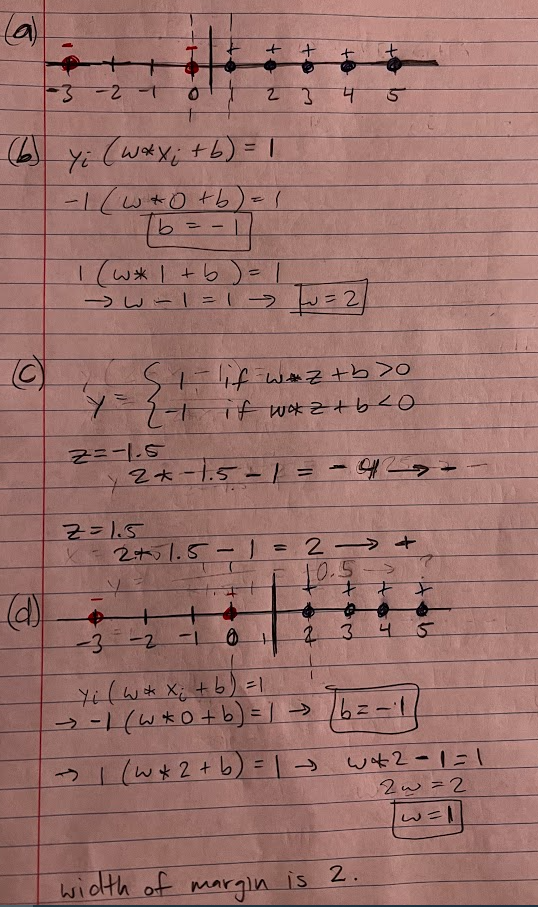 (a)
- - + + + + +
-3 -2 -1 0 1 2 3 4 5
(b) yi (w*xi + b) = 1
-1 (w*0 + b) = 1
b = -1
1 (w*1 + b) = 1
→ w - 1 = 1 → w = 2
(c) y = { 1 if w*z + b > 0
-1 if w*z + b < 0
z = -1.5
2* -1.5 - 1 = -4 → -
z = 1.5
2* 1.5 - 1 = 2 → +
(d)
- + + + + +
-3 -2 -1 0 1 2 3 4 5
yi (w* xi + b) = 1
→ -1 (w*0 + b) = 1 → b = -1
→ 1 (w*2 + b) = 1 → w*2 - 1 = 1
2w = 2
w = 1
width of margin is 2.